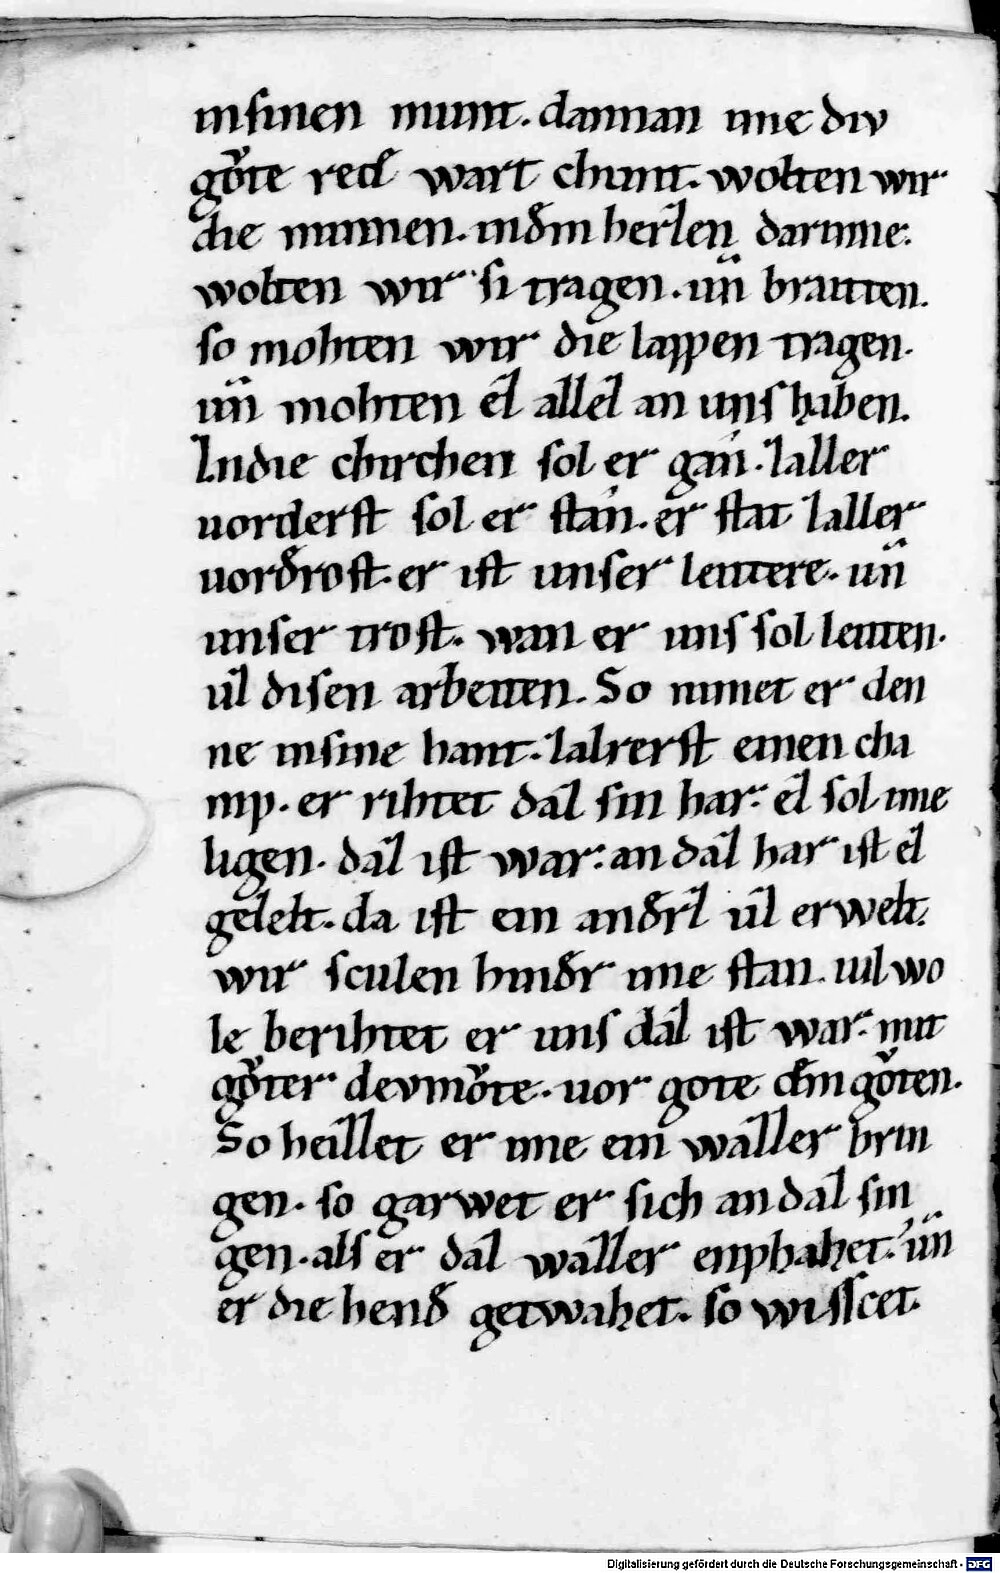 insinen munt. dannan ime div
gǒte red̄ wart chunt. wolten wir
die minnen. ind̄m herzen darinne.
wolten wir si tragen. un̄ braitten.
so mohten wir die lappen tragen.
un̄ mohten ez allez an uns haben.
Indie chirchen sol er gan. zaller
uorderst sol er stan. er stat zaller
uord̄rost. er ist unser leitere. un̄
unser trost. wan er uns sol leiten.
uz disen arbeiten. So nimet er den
ne insine hant. zalrerst einen cha
mp. er rihtet daz sin har. ez sol ime
ligen. daz ist war. an daz har ist ez
gezelt. da ist ein and̄rz uz erwelt.
wir sculen hind̄r ime stan. uil wo
le berihtet er uns daz ist war. mit
gǒter devmǒte. uor gote d̄m gǒten.
So heizzet er ime ein wazzer brin
gen. so garwet er sich an daz sin
gen. als er daz wazzer enphahet. un̄
er die hend̄ getwahet. so wisscet.
Digitalisierung gefördert durch die Deutsche Forschungsgemeinschaft - DFG